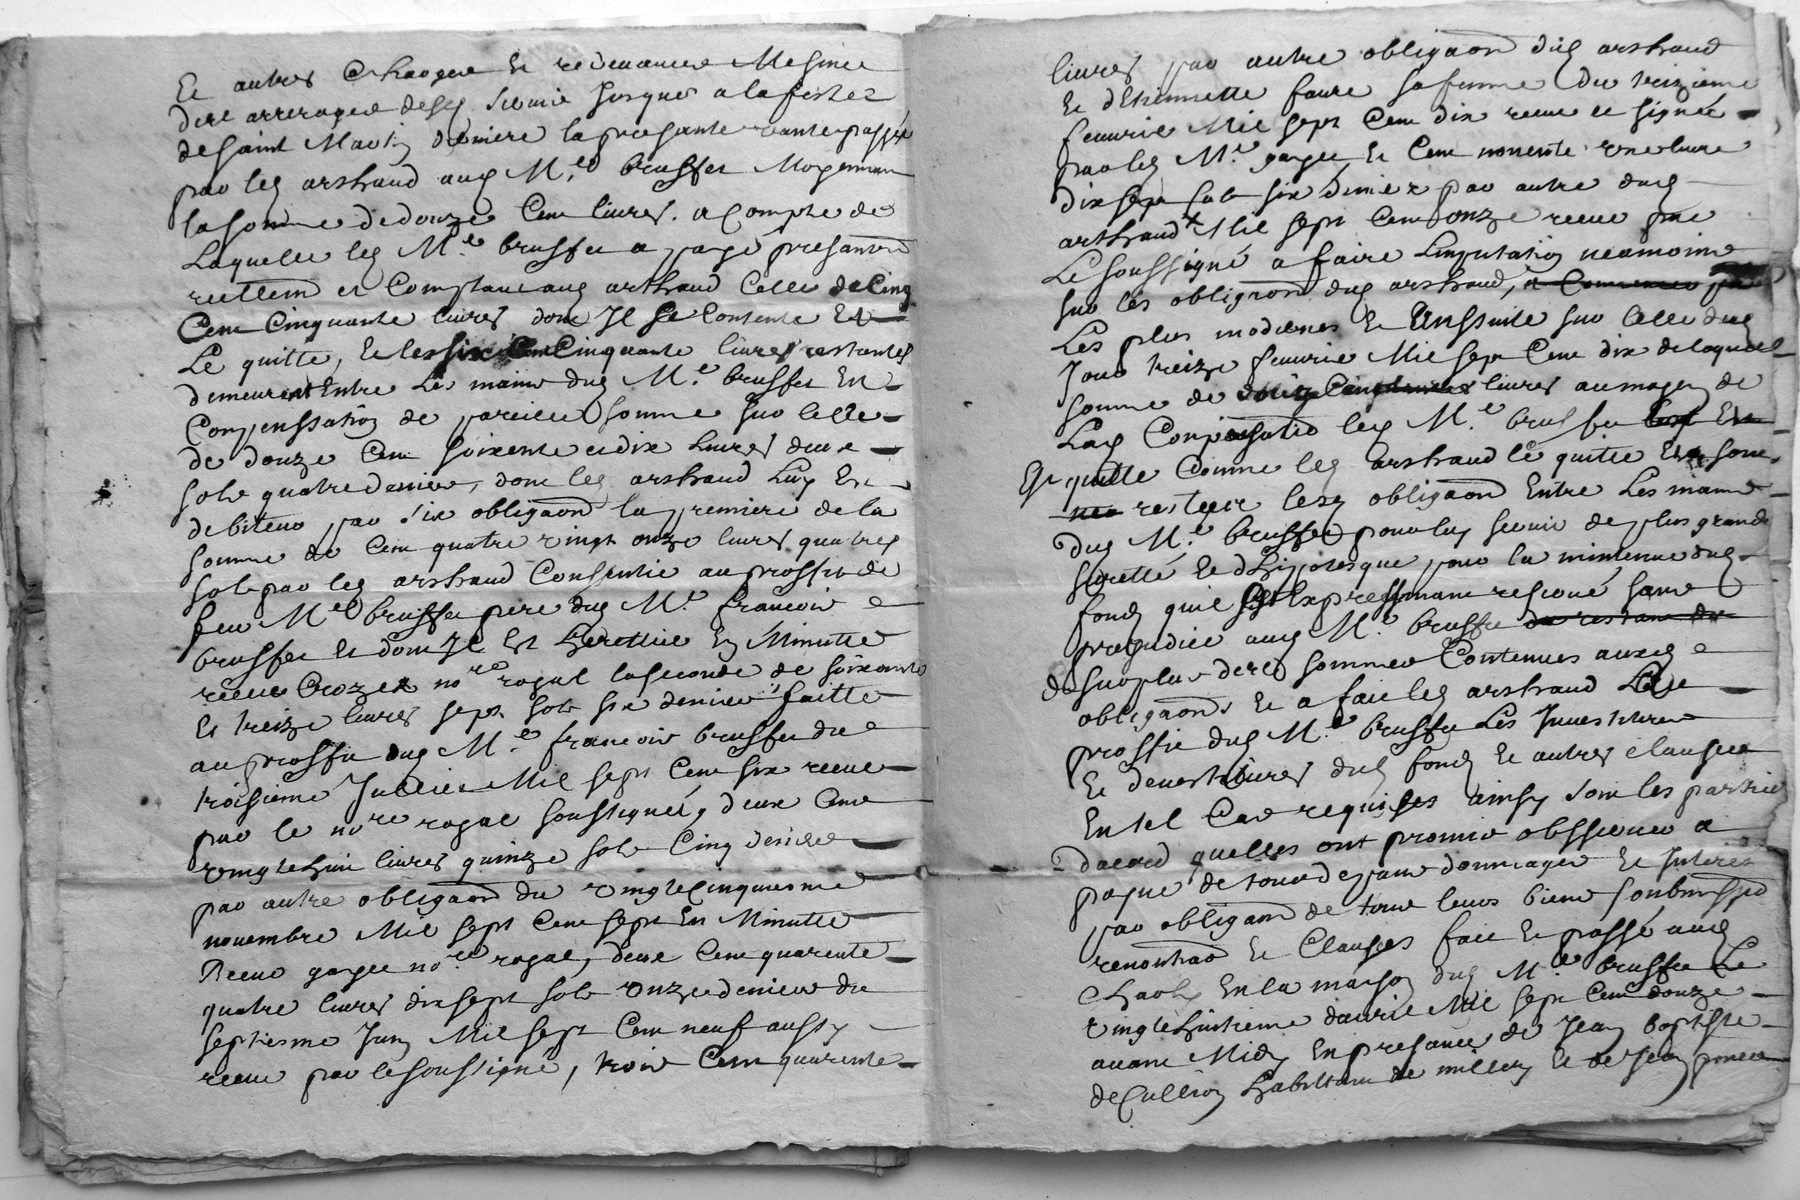 Et autres Charges et redevances Mesmes
des arrerages desd servis jusques a la feste
de saint Martin derniere la presante vante passée
par led arthaud aud M.e brusset Moyennant
la somme de douze Cent livres. a Compte de
Laquelle led M.e brusset a payé présantem
reellem et Comptant aud arthaud Celle de Cinq
Cent Cinquante livres dont Il Se Contente Et
Le quitte, Et les six Cent Cinquante livres restantes
demeurent Entre Les mains dud M.e brusset En
Compenssation de pareille somme sur Celle
de douze Cent soixente et dix livres deux
sols quatre deniers, dont led arthaud Luy Est
debiteur par six obligaons la premiere de la
somme de Cent quatre vingt onze livres quatre
sols par led arthaud Consentie au proffit de
feu M.e brusset pere dud M.e francois
brusset Et dont Il Est heretier En Minutte
receue Crozet no.re royal la seconde de soixante
Et treize livres sept sols six deniers faitte
au proffit dud M.e francois brusset du
troisieme Juillet Mil sept Cent six receue
par le no.re royal soussigné, deux Cent
vingt huit livres quinze sols Cinq deniers
par autre obligaon du vingt Cinquiesme
novembre Mil sept Cent sept En Minutte
Receue no.re royal, deux Cent quarente
quatre livres dix sept sols onze deniers du
septiesme Juin Mil sept Cent neuf aussy
receue par le soussigné, trois Cent quarente
livres par autre obligaon dud arthaud
Et d'Etiennette faure sa femme du treizieme
fevvrier Mil sept Cent dix receue et signée
par led M.e Et Cent nonente une livre
dix sept sols six deniers par autre dud
arthaud Mil sept Cent onze receue par
Le soussigné a faire Limputation neamoins
sur les obligaons dud arthaud,
Les plus modernes Et Ensuite sur Celle dud
Jour treize fevvrier Mil sept Cent dix de laquelle
somme de livres au moyen de
Lad Compensation led M.e brusset
quitte Comme led arthaud le quitte Et sont
rester lesd obligaons Entre Les mains
dud M.e brusset pour luy servir de plus grande
suretté Et d'hipotesque pour la mintenue dud
fond qu'il sest Expressemant reservé sans
prejudice aud M.e brusset
du surplus des sommes Contenues auxd
obligaons Et a fait led arthaud
proffit dud M.e brusset Les Investitures
Et devestitures dud fond Et autres clauses
En tel Cas requises ainsy sont les parties
dacord quelles ont promis observer a
payne de tous despans dommages Et Interets
par obligaon de tous leurs biens soubmission
renontiaon Et Clauses fait Et passé aud
En la maison dud M.e brusset Le
vingt huitieme d'avril Mil sept Cent douze
avant Midy En presance de Jean baptiste
de habittant de millery Et de Jean